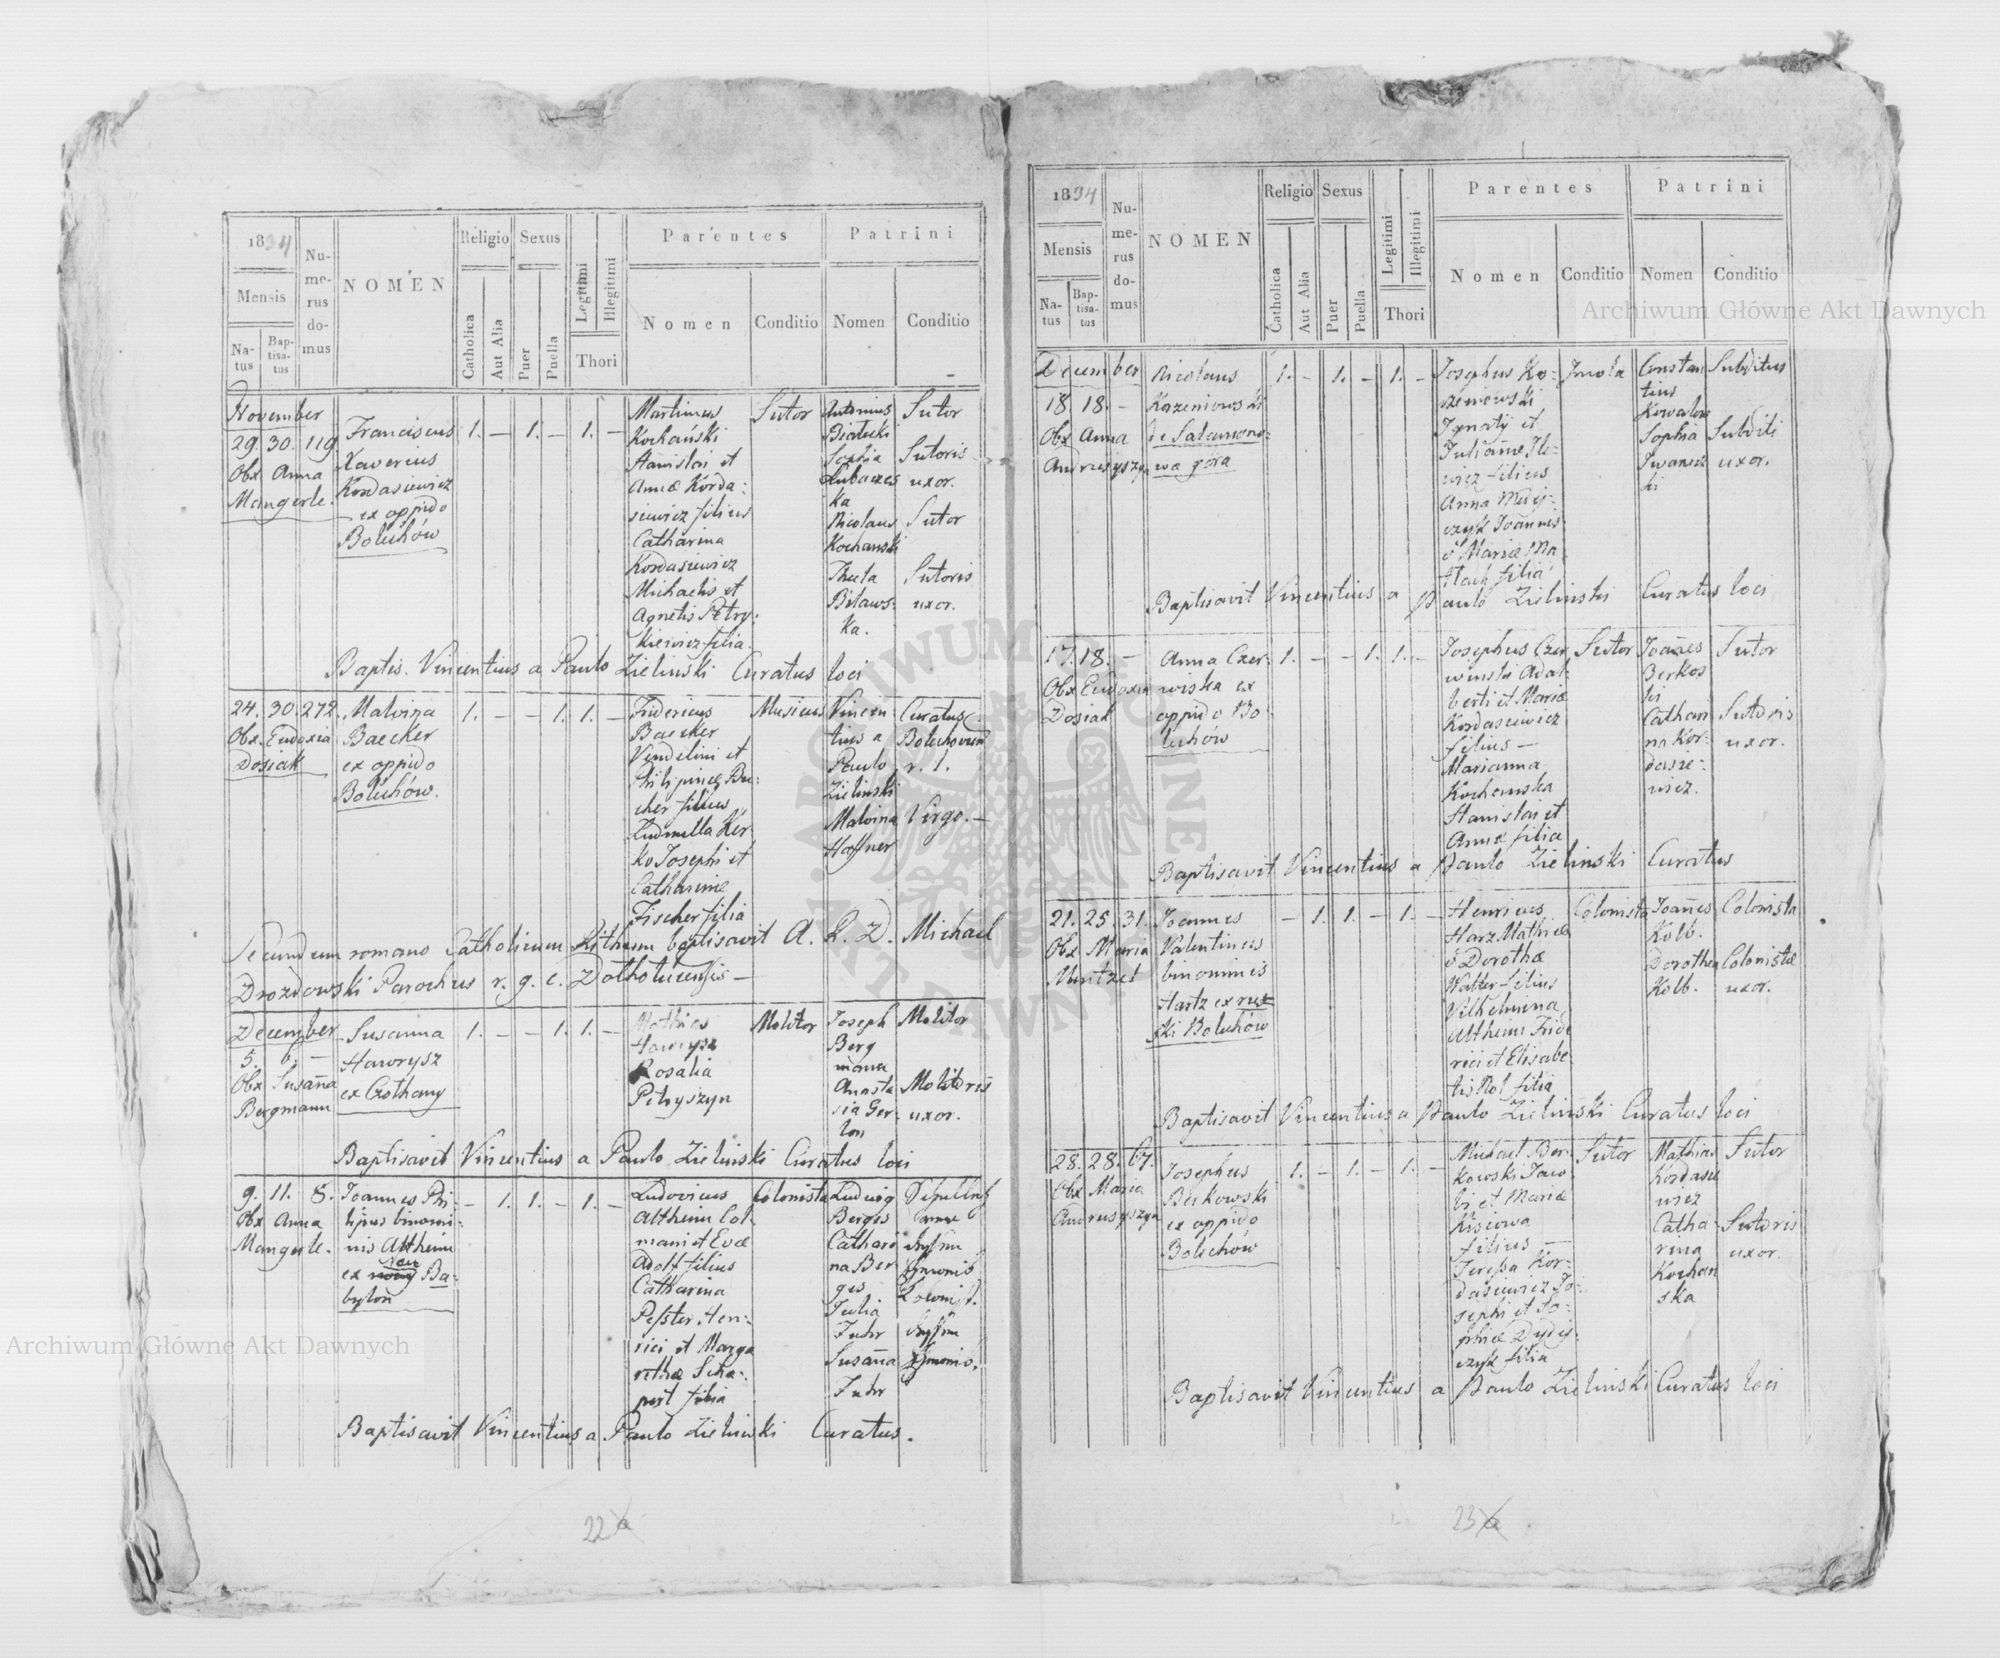 1834
Mensis
Na-
tus
Bap-
tisa-
tus
Nu-
me-
rus
do-
mus
NOMEN
Religio
Catholica
Aut Alia
Sexus
Puer
Puella
Legitimi
Illegitimi
Thori
Parentes
Nomen
Conditio
Patrini
Nomen
Conditio
November
29. 30. 119
Obx Anna
Mangerle.
Franciscus
Xaverius
Kordasiewicz
ex oppido
Bolechów
1. – 1. – 1. –
Martinus
Kochański
Stanislai et
Annæ Korda:
siewicz filius
Catharina
Kordasiewicz
Michaelis et
Agnetis Petry:
kiewicz filia.
Sutor
Antonius
Sophia
ka
Nicolaus
Kochanski
Thecla
Bilaws:
ka.
Sutor
Sutoris
uxor.
Sutor
Sutoris
uxor.
Baptis. Vincentius a Paulo Zielinski Curatus loci
24. 30. 272.
Obx. Eudoxia
Dosiak
Malvina
Baecker
ex oppido
Bolechów.
1. – – 1. 1. –
Fridericus
Baecker
Vendelini et
Philipinæ Bu:
cher filius
Ludmilla Ker:
ko Josephi et
Catharinæ
Fischer filia
Musicus
Vincen
tius a
Paulo
Zielinski
Malvina
Haffner
Curatus
r. l.
Virgo. –
Secundum romano Catholicum Rithum baptisavit A. R. D. Michael
Drozdowski Parochus r. g. c. –
December
5. 6. –
Obx Susaña
Bergmann
Susanna
Hawrysz
ex Gothany
1. – – 1. 1. –
Mathias
Hawrysz
Rosalia
Petryszyn
Molitor
Joseph
Berg
mann
Anasta
sia Ger:
lon
Molitor
Molitoris
uxor.
Baptisavit Vincentius a Paulo Zielinski Curatus loci
9. 11. 8.
Obx Anna
Mangerle.
Joannes Phi
lipus binomi:
nis Altheim
Neu
ex nowy Ba:
bylon
– 1. 1. – 1. –
Ludovicus
Altheim Col:
mani et Evæ
Adolf filius
Catharina
Peſster Hen:
rici et Marga
rethæ Scha:
pert filia
Colonista
Ludwig
Berges
Cathari
na Ber
ges
Julia
Fuhr
Susaña
Fuhr
Baptisavit Vincentius a Paulo Zielinski Curatus.
22a
1834
Mensis
Na-
tus
Bap-
tisa-
tus
Nu-
me-
rus
do-
mus
NOMEN
Religio
Catholica
Aut Alia
Sexus
Puer
Puella
Legitimi
Illegitimi
Thori
Parentes
Nomen
Conditio
Patrini
Nomen
Conditio
December
18 18. –
Obx Anna
Andrusyszyn
Nicolaus
Korzeniowski
de Salamono:
wa góra
1. – 1. – 1. –
Josephus Ko:
rzeniowski
Ignatij et
Anna Medy:
czyk Joannis
& Mariæ Ma:
filia
Constan
tius
Sophia
Iwanick
ki
Subditus
Subditi
uxor.
Baptisavit Vincentius a Paulo Zielinski Curatus loci
17. 18. –
Obx Eudoxia
Dosiak
Anna Czer:
winska ex
oppido Bo
lechów
1. – – 1. 1. –
Josephus Czer
winski Adal:
berti et Mariæ
Kordasiewicz
filius –
Marianna
Kochanska
Stanislai et
Annæ filia
Sutor
Joañes
Berkos
ki
Cathari
na Kor:
dasie:
wicz.
Sutor
Sutoris
uxor.
Baptisavit Vincentius a Paulo Zielinski Curatus
21. 25. 31.
Obx Maria
Joannes
Valentinus
binominis
Hartz ex rus
ki Bolechów
– 1. 1. – 1. –
Henricus
Harz Mathiæ
& Dorothæ
Walter filius
Vilhelmina
Altheim Fride
rici et Elisabe
tis Rol filia
Colonista
Joañes
Kolb.
Dorothea
Kolb.
Colonista
Colonistæ
uxor.
Baptisavit Vincentius a Paulo Zielinski Curatus loci
28. 28. 67.
Obx Maria
Andrusyszyn
Josephus
Berkowski
ex oppido
Bolechów
1. – 1. – 1. –
Michael Ber:
kowski Jaco
bi et Mariæ
Kisiowa
filius –
Teresa Kor:
dasiewicz Jo:
sephi et So:
phiæ Dydy:
czyk filia
Sutor
Mathias
Kordasie
wicz
Catha
rina
Kochan
ska
Sutor
Sutoris
uxor.
Baptisavit Vincentius a Paulo Zielinski Curatus loci
23a
Archiwum Główne Akt Dawnych
Archiwum Główne Akt Dawnych
ARCHIWUM GŁÓWNE AKT DAWNYCH